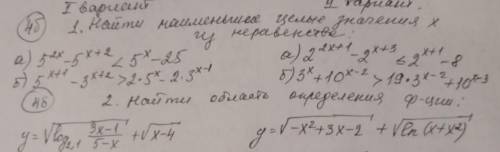 I вариант II вариант.
4б 1. Найти наименьшее целые значения x
из неравенств:
а) 5^{2x} - 5^{x+2} < 5^x - 25 а) 2^{2x+1} - 2^{x+3} ≤ 2^{x+1} - 8
б) 5^{x+1} - 3^{x+2} > 2·5^x - 2·3^{x-1} б) 3^x + 10^{x-2} > 19·3^{x-2} + 10^{x-3}
4б 2. Найти область определения ф-ции:
y = √(log_{2,1} (3x-1)/(5-x)) + √(x-4) y = √(-x²+3x-2) + √(ln(x+x²))